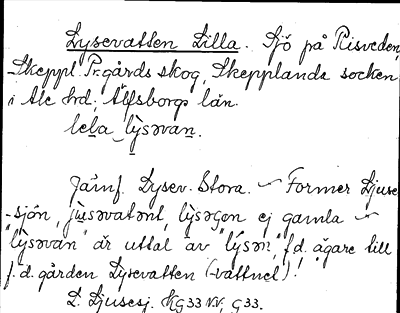 Lysevatten Lilla. Sjö på Risveden,
Skeppl. Pr.gårds skog, Skepplanda socken
i Ale hrd; Älfsborgs län.
lela lỳsəvan.
Jämf. Lysev. Stora. — Former Ljuse
-sjön, jùsəvatənt, lỳsəgən ej gamla —
"lỳsəvan" är uttal av "lýsən", f.d. ägare till
f.d. gården Lysevatten (-vattnet).
L. Ljusesj. KG33 NV, G33.